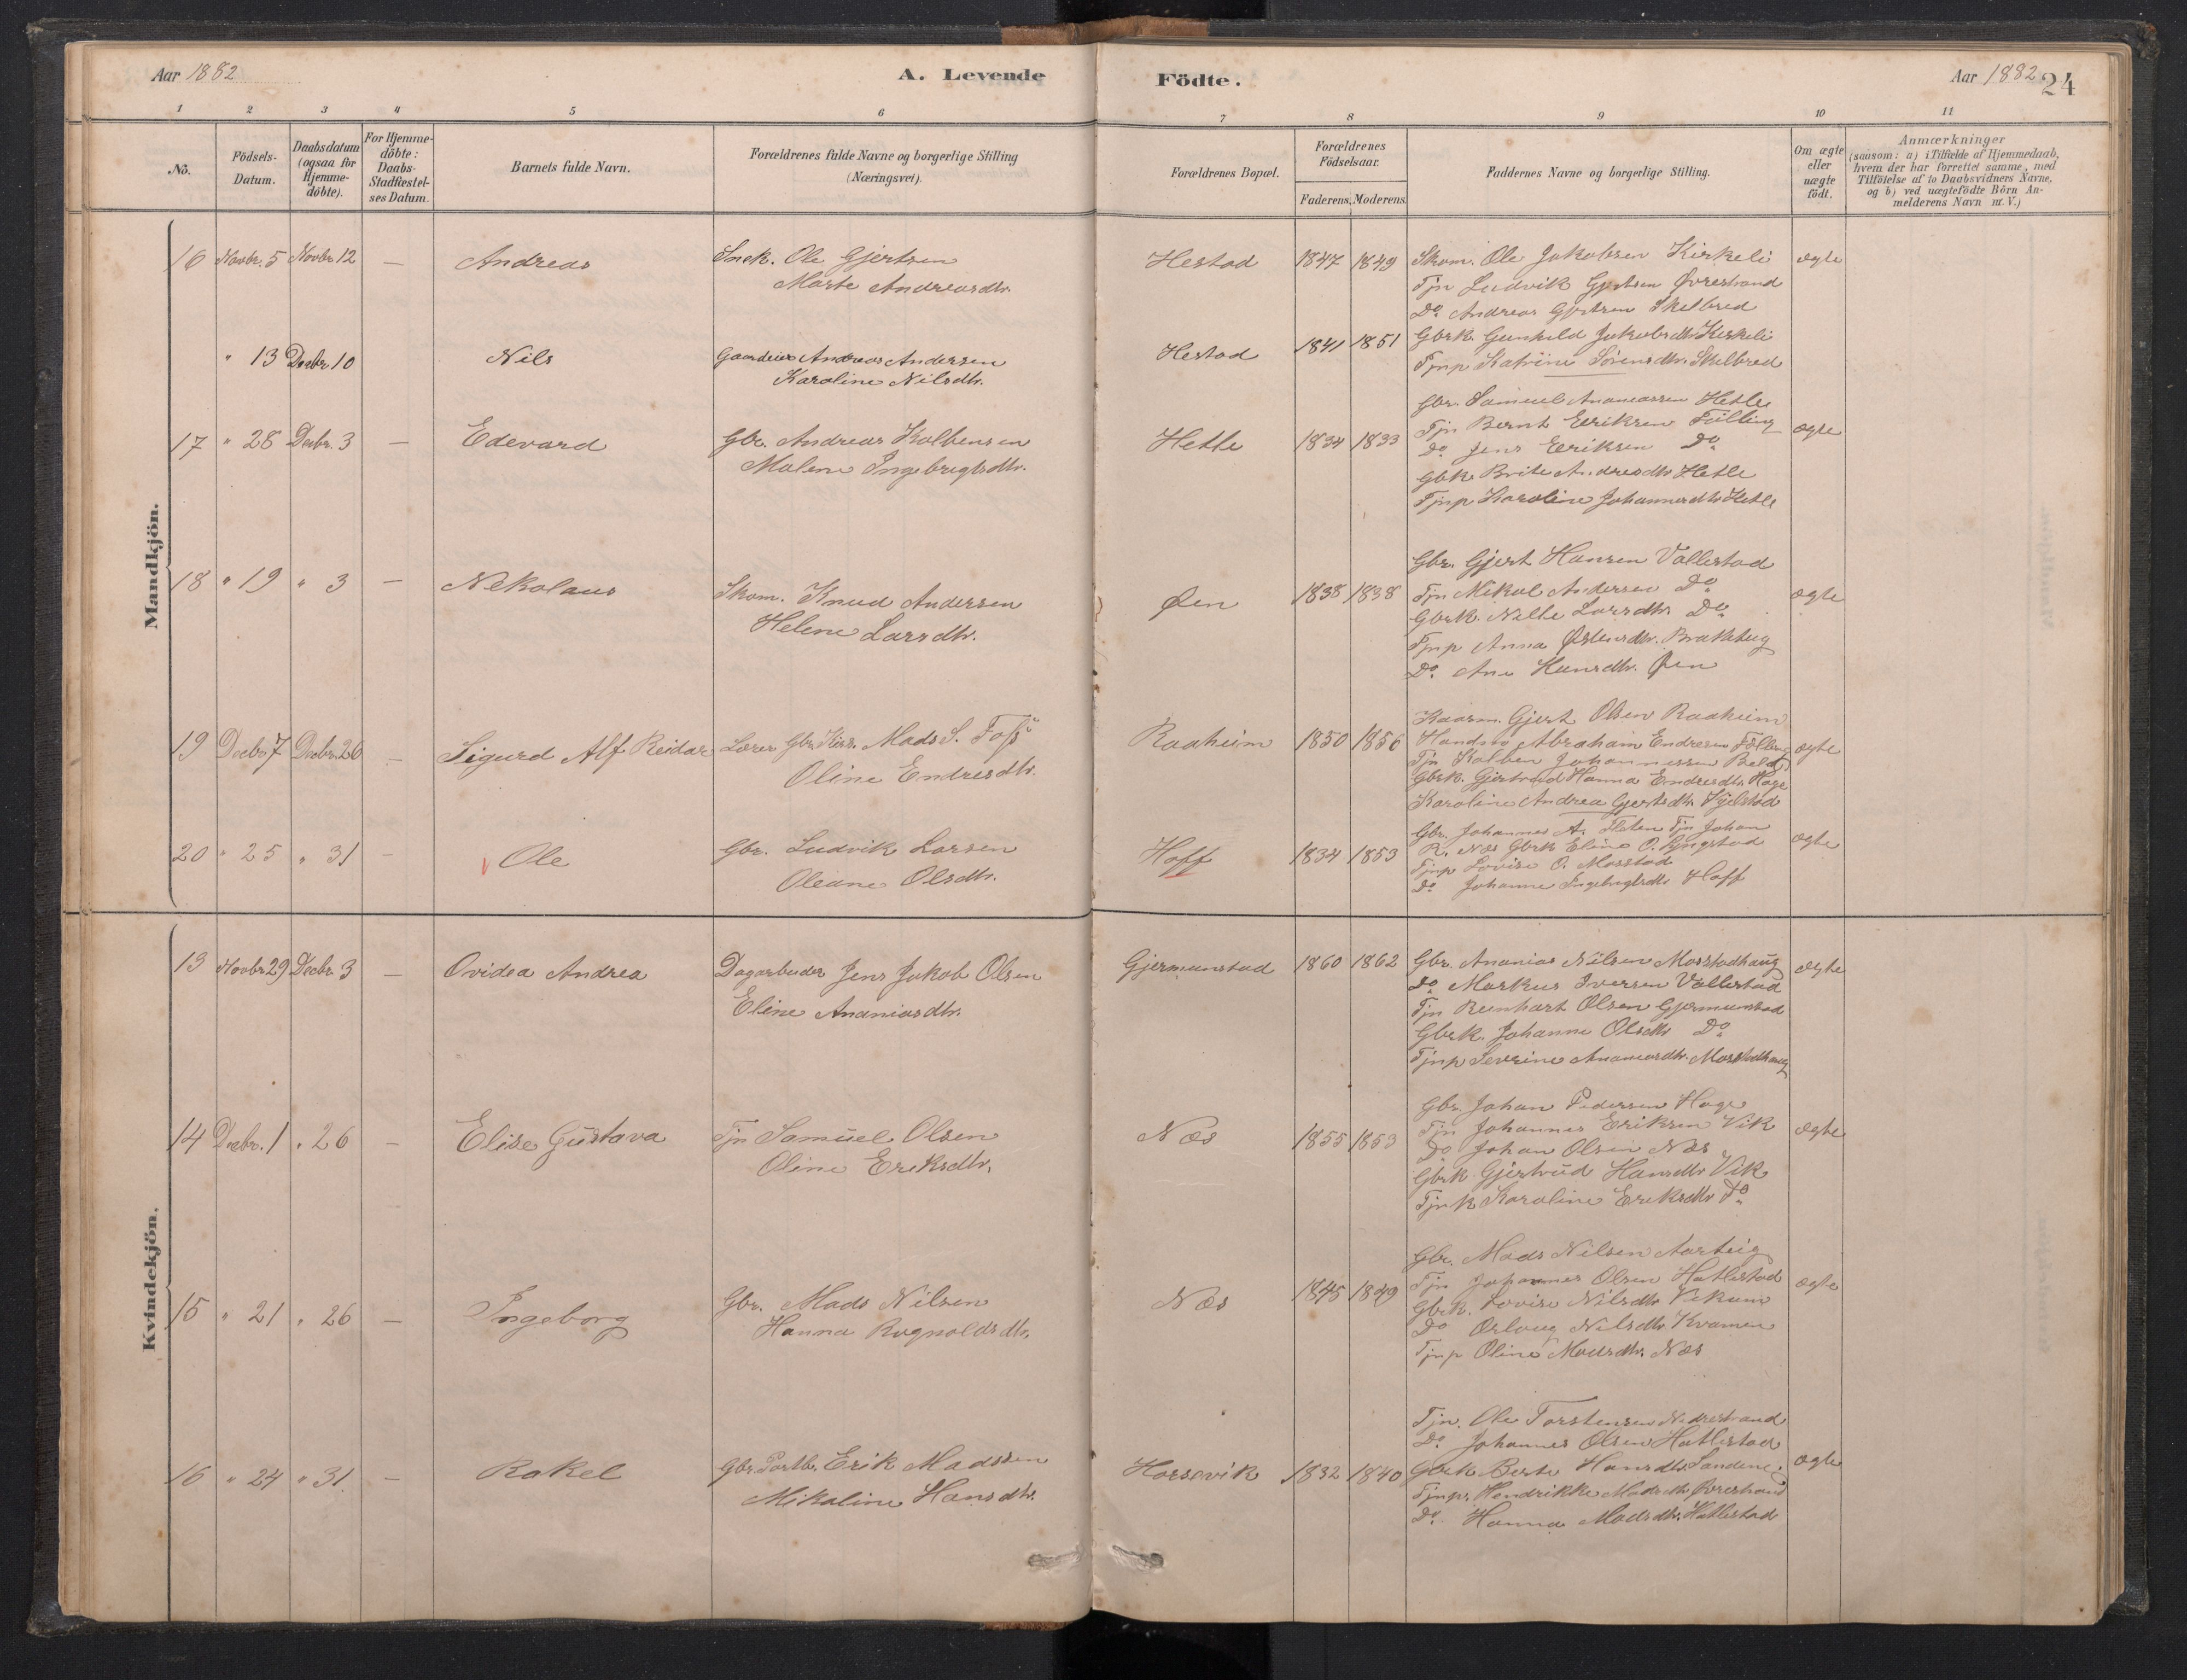 Aar 1882
A. Levende
Födte.
Aar 1882
24
1 2 3 4 5 6 7 8 9 10 11
No.
Födsels-Datum.
Daabsdatum (ogsaa for Hjemme-döbte).
For Hjemme-döbte: Daabs-Stadfæstel-ses Datum.
Barnets fulde Navn.
Forældrenes fulde Navne og borgerlige Stilling
(Næringsvei).
Forældrenes Bopæl.
Forældrenes Födselsaar.
Faderens. Moderens.
Faddernes Navne og borgerlige Stilling.
Om ægte eller uægte födt.
Anmærkninger
(saasom: a) i Tilfælde af Hjemmedaab,
hvem der har forrettet samme, med
Tilföielse af to Daabsvidners Navne,
og b) ved uægtefödte Börn An-
melderens Navn m. V.)
Mandkjön.
16 Novbr. 5 Novbr 12 — Andreas Snek. Ole Gjertsen Hestad 1847 1849 Skom. Ole Jakobsen Kirkeli ægte
Marte Andreasdtr. Tjn Ludvik Gjertsen Øvrestrand
Do. Andreas Gjertsen Skilbred
Gbrk. Gunhild Jakobsdtr Kirkeli
" 13 Decbr 10 Nils Gaardeier Andreas Andersen Hestad 1841 1851
Karoline Nilsdtr. Tjnp Katrine Sørensdtr. Skilbred
Gbr. Samuel Ananiassen Hetle
17 " 28 Decbr. 3 — Edevard Gbr. Andreas Kolbensen Hetle 1834 1833 Tjn Bernt Eeriksen Fülling ægte
Malene Ingebrigtsdtr. Do Jens Eeriksen Do
Gbk. Brite Andresdtr Hetle
Tjnp Karoline Johannesdtr Hetle
Gbr. Gjert Hansen Vallestad
18 " 19 " 3 — Nekolaus Skom. Knud Andersen Øen 1838 1838 Tjn Mikal Andersen Do ægte
Helene Larsdtr. Gbrk. Nille Larsdtr Do
Tjnp Anna Østensdtr. Brakhug
Do. Ane Hansdtr. Øen
Kaarm. Gjert Olsen Raaheim
19 Decbr 7 Decbr. 26 — Sigurd Alf Reidar Lærer Gbr. Kirs. Mads S. Foss Raaheim 1850 1856 Handm Abraham Endresen Fölling ægte
Oline Endresdtr. Tjn Kolben Johannessen Beld
Gbrk. Gjertrud Hanna Endresdtr. Hage
Karoline Andrea Gjertsdtr.
20 " 25 " 31 — Ole Gbr. Ludvik Larsen Hoff 1834 1853 Gbr. Johannes A. Flaten Tjn Johan ægte
Oleane Olsdtr. R. Næs Gbrk Eline O. Ryngstad
Tjnp Lovise O. Masstad
Do Johanne Ingebrigtsdtr Hoff
Kvindekjön.
13 Novbr 29 Decbr. 3 — Ovidea Andrea Dagarbeider Jens Jakob Olsen Gjermunstad 1860 1862 Gbr. Ananias Nilsen Masstadhaug ægte
Eline Ananiasdtr. Do Markus Iversen Vallestad
Tjn Reinhart Olsen Gjermunstad
Gbrk. Johanne Olsdtr Do
Tjnp Severine Ananiasdtr. Masstadhaug
Gbr. Johan Pedersen Hage
14 Decbr. 1 " 26 — Elise Gustava Tjn Samuel Olsen Næs 1855 1853 Tjn Johannes Eriksen Vik ægte
Oline Eriksdtr. Do Johan Olsen Næs
Gbrk Gjertrud Hansdtr Vik
Tjnk Karoline Eriksdtr Do
Gbr. Mads Nilsen Aarteig
15 " 21 " 26 — Ingeborg Gbr. Mads Nilsen Næs 1845 1849 Tjn Johannes Olsen Hatlestad ægte
Hanna Rognaldsdtr. Gbrk. Lovise Nilsdtr Vikum
Do Orlaug Nilsdtr Kvamen
Tjnp Oline Madsdtr. Næs
Tjn. Ole Torstensen Nedrestrand
Do. Johannes Olsen Hatlestad
16 " 24 " 31 — Rakel Gbr. Postb. Erik Madssen Horsevik 1832 1840 Gbrk Berte Hansdtr. Sandene ægte
Mikaline Hansdtr. Tjnp. Hendrikke Madsdtr. Øvrestrand
Do. Hanna Madsdtr. Hatlestad